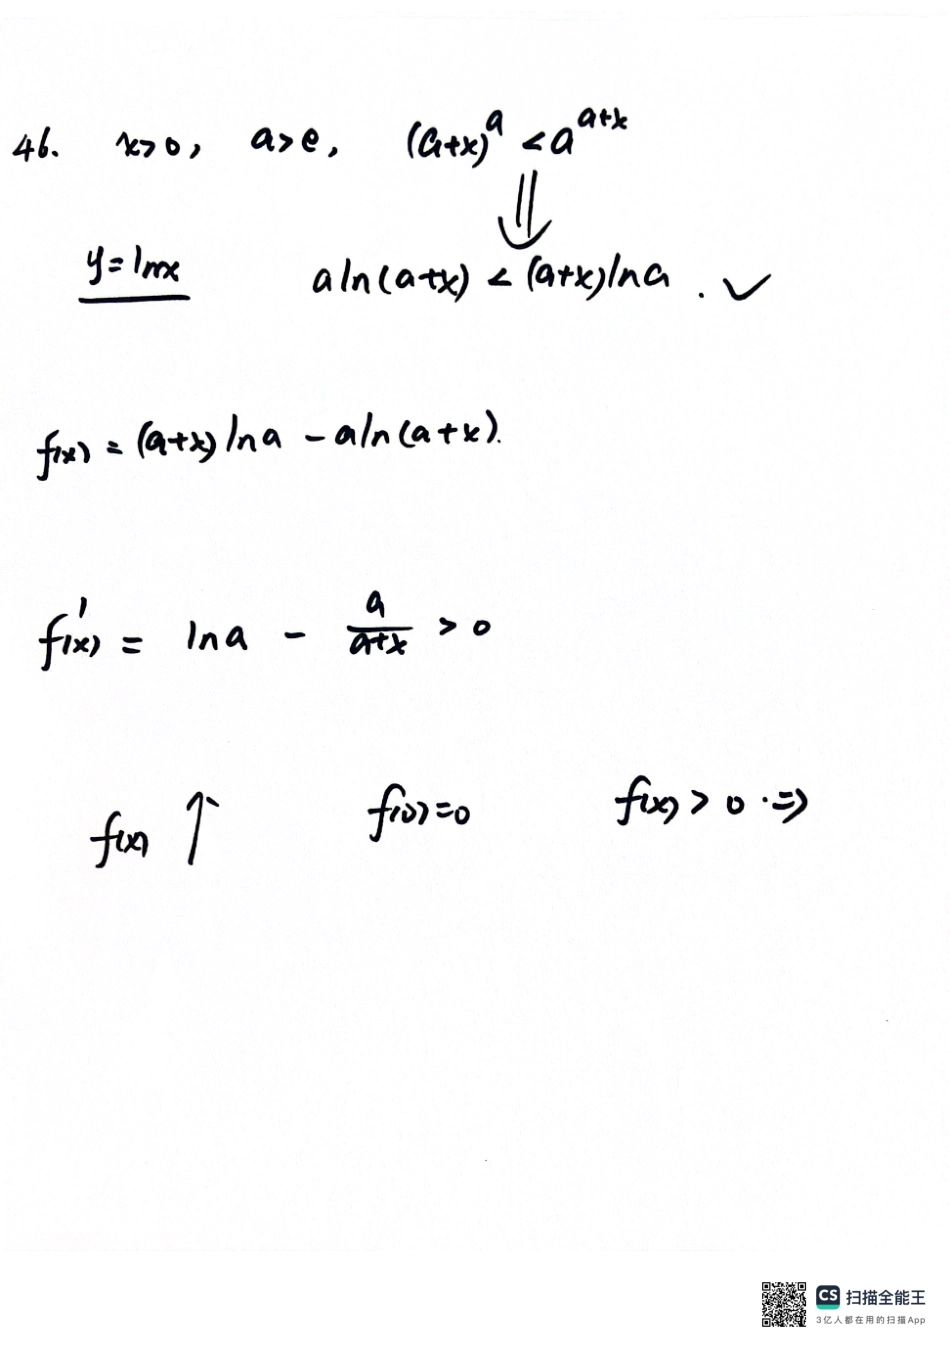 46. x>0, a>e, (a+x)^a < a^{a+x}
⇓
y=lnx aln(a+x) < (a+x)lna. ✓
f(x) = (a+x)lna - aln(a+x).
f'(x) = lna - \frac{a}{a+x} > 0
f(x) ↑ f(0)=0 f(x)>0 . ⇒
CS 扫描全能王
3亿人都在用的扫描App